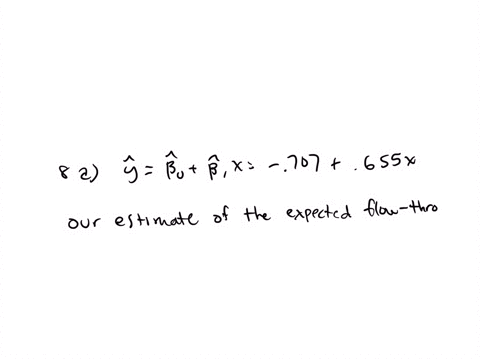 8 a) ŷ = β̂₀ + β̂₁x = -.707 + .655x
our estimate of the expected flow-thro